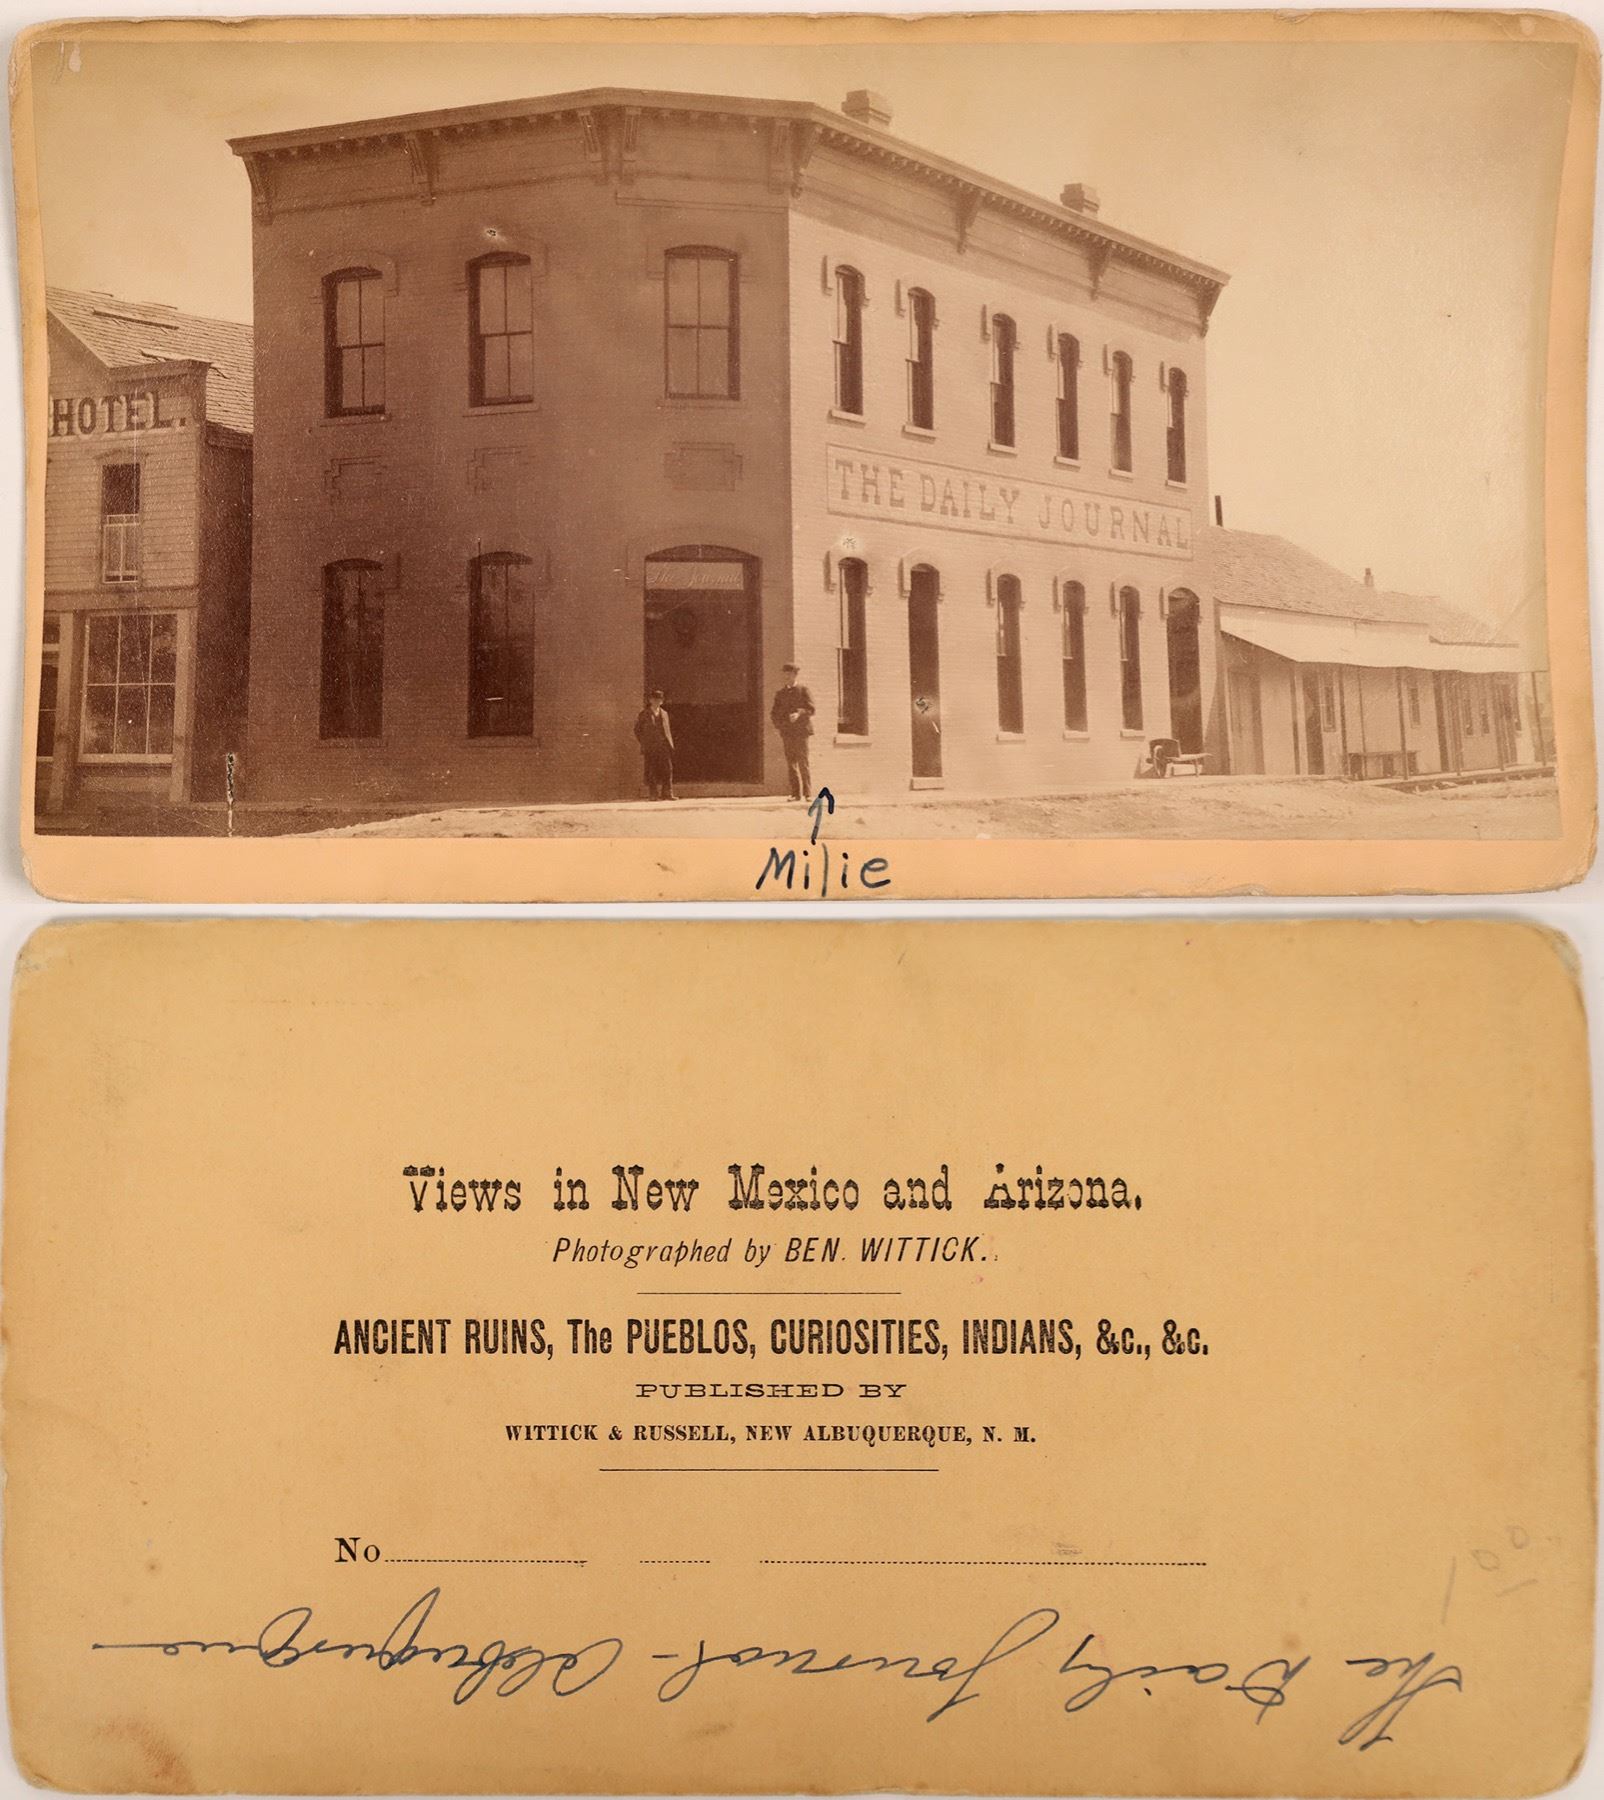 HOTEL.
THE DAILY JOURNAL
The Journal
Milie
Views in New Mexico and Arizona.
Photographed by BEN. WITTICK.
ANCIENT RUINS, The PUEBLOS, CURIOSITIES, INDIANS, &c., &c.
PUBLISHED BY
WITTICK & RUSSELL, NEW ALBUQUERQUE, N. M.
No
The Daily Journal - Albuquerque